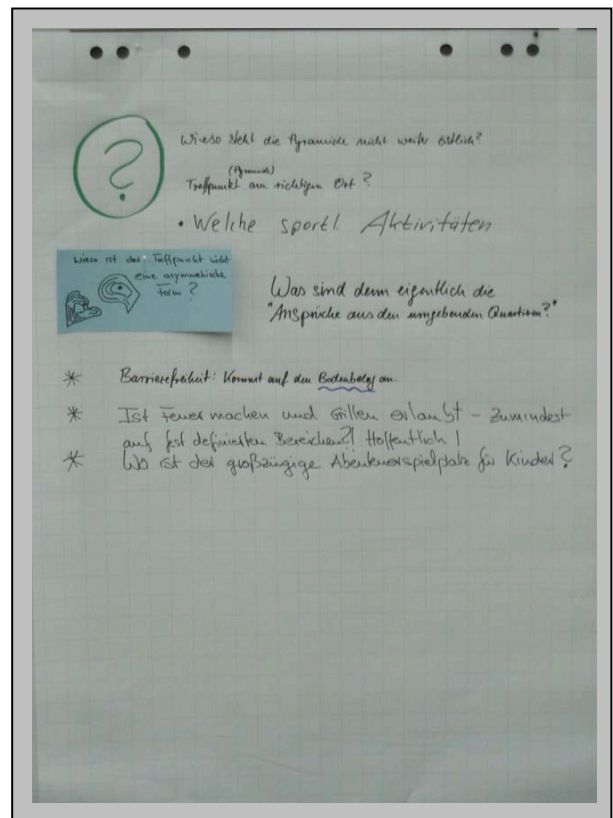 ?
Wieso steht die Pyramide nicht weiter östlich?
(Pyramide)
Treffpunkt am richtigen Ort?
• Welche sportl. Aktivitäten
Wieso ist der Treffpunkt nicht
eine asymmetrische
Form?
Was sind denn eigentlich die
"Ansprüche aus den umgebenden Quartieren?"
* Barrierefreiheit: Kommt auf den Bodenbelag an.
* Ist Feuer machen und Grillen erlaubt - zumindest
auf fest definierten Bereichen?! Hoffentlich!
* Wo ist der großzügige Abenteuerspielplatz für Kinder?